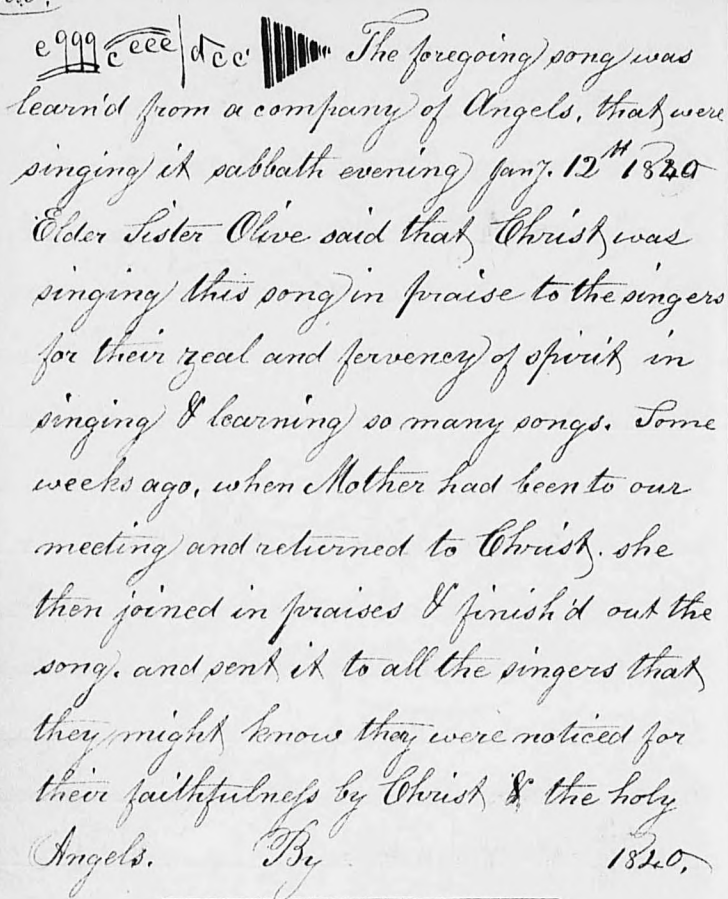 e ggg c eee | d c c The foregoing song was
learn'd from a company of Angels, that were
singing it sabbath evening Jany. 12th 1840
Elder Sister Olive said that Christ was
singing this song in praise to the singers
for their zeal and fervency of spirit in
singing & learning so many songs. Some
weeks ago, when Mother had been to our
meeting and returned to Christ. she
then joined in praises & finish'd out the
song. and sent it to all the singers that
they might know they were noticed for
their faithfulness by Christ & the holy
Angels. By 1840.